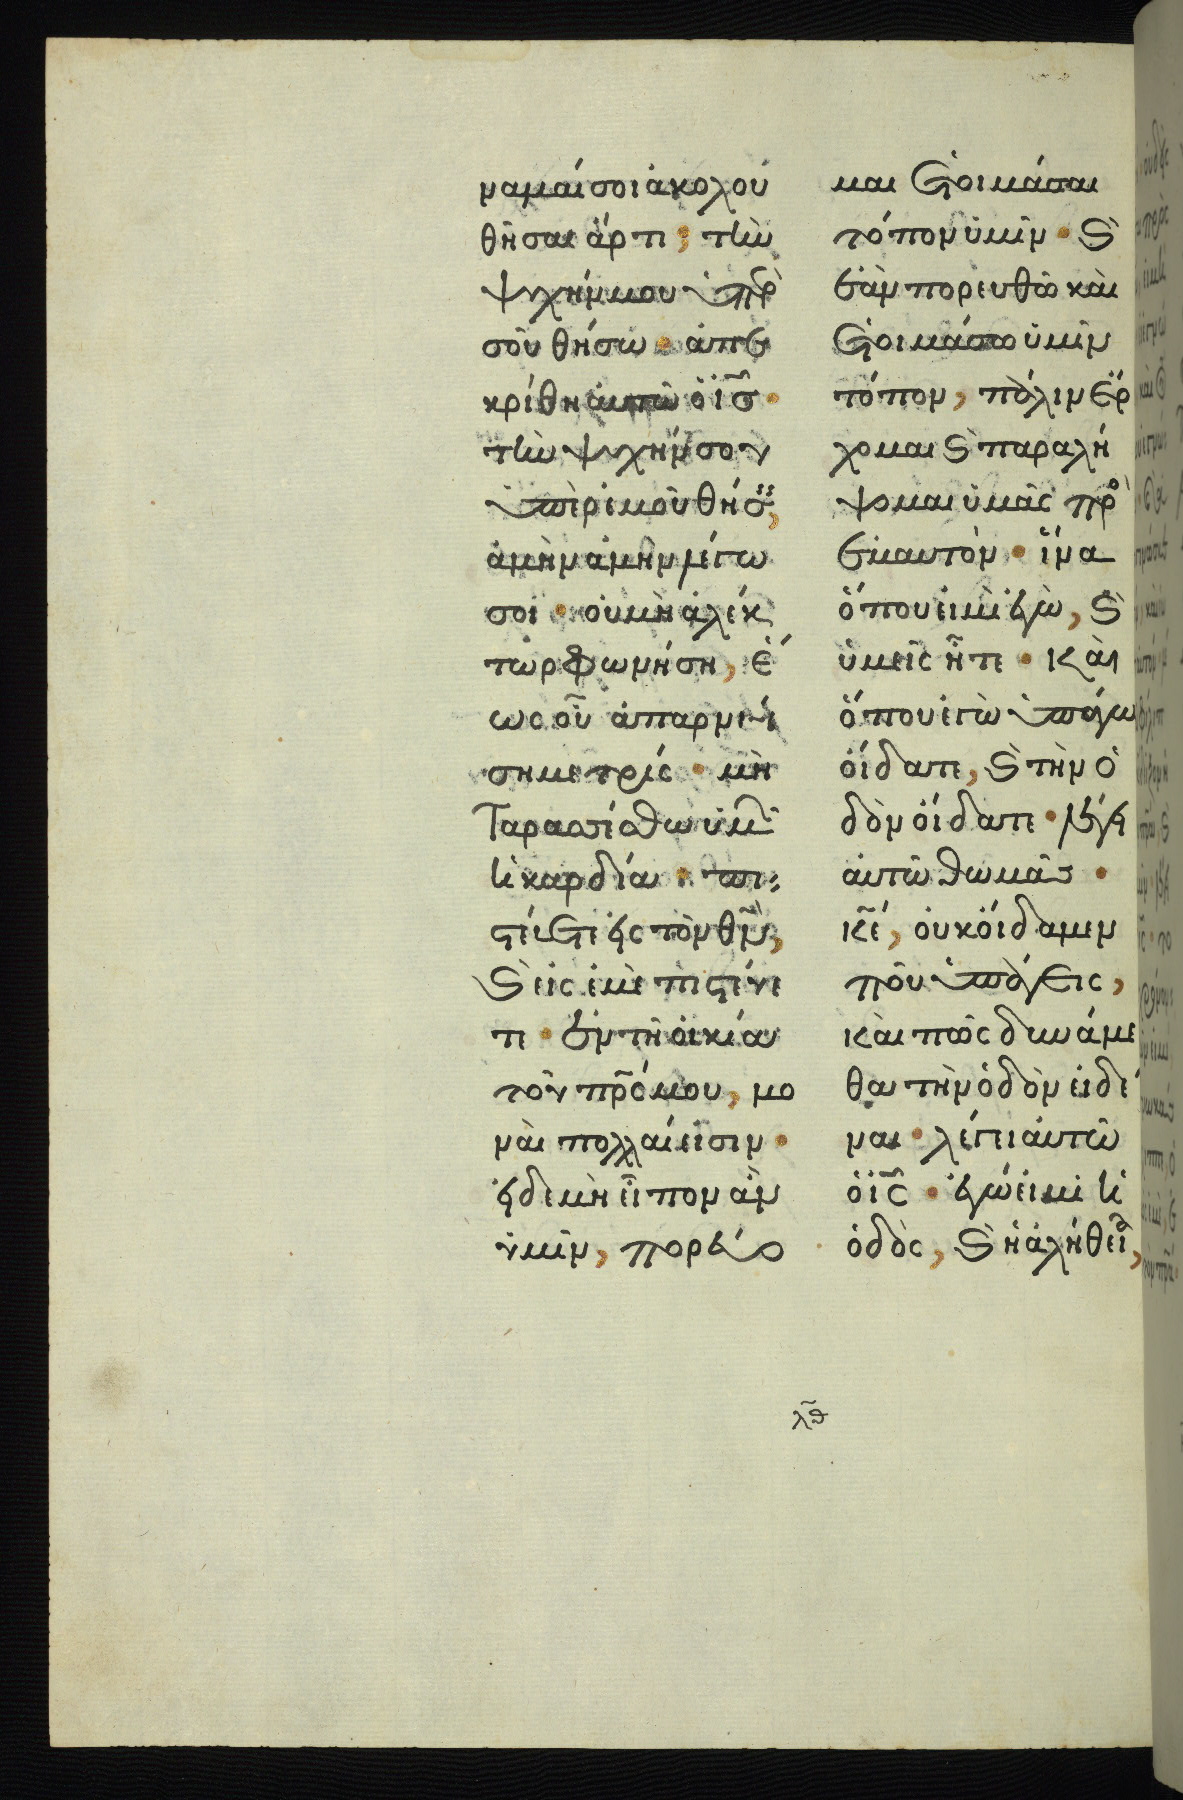 ναμαί σοι ἀκολου
θῆσαι ἄρτι; τὴν
ψυχήν μου ὑπὲρ
σοῦ θήσω· ἀπε
κρίθη αὐτῶ ὁ ἰς·
τὴν ψυχήν σου
ὑπὲρ ἐμοῦ θήσεις,
ἀμὴν ἀμὴν λέγω
σοι· οὐ μὴ ἀλέκ
τωρ φωνήση, ἕ
ως οὗ ἀπαρνή
ση με τρίς· μὴ
Ταρασσέσθω ὑμῶν
ἡ καρδία· πι
στεύετε εἰς τὸν θν,
καὶ εἰς ἐμὲ πιστεύε
τε· ἐν τῆ οἰκία
τοῦ πρς μου, μο
ναὶ πολλαί εἰσιν·
εἰ δὲ μὴ εἶπον ἂν
ὑμῖν, πορεύο
μαι ἑτοιμάσαι
τόπον ὑμῖν· καὶ
ἐὰν πορευθῶ καὶ
ἑτοιμάσω ὑμῖν
τόπον, πάλιν ἔρ
χομαι καὶ παραλή
ψομαι ὑμᾶς πρὸς
ἐμαυτόν· ἵνα
ὅπου εἰμὶ ἐγὼ, καὶ
ὑμεῖς ἦτε· καὶ
ὅπου ἐγὼ ὑπάγω
οἴδατε, καὶ τὴν ὁ
δὸν οἴδατε· λέγει
αὐτῶ θωμᾶς·
κε, οὐκ οἴδαμεν
ποῦ ὑπάγεις,
καὶ πῶς δυνάμε
θα τὴν ὁδὸν εἰδέ
ναι· λέγει αὐτῶ
ὁ ἰς· ἐγώ εἰμι ἡ
ὁδὸς, καὶ ἡ ἀλήθεια,
λθ